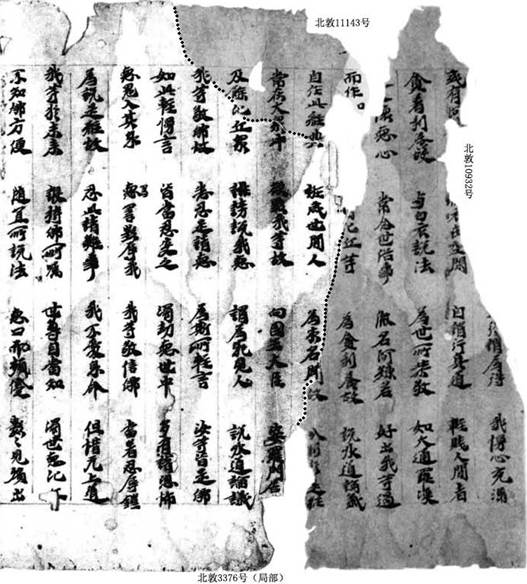 北敦11143号
北敦10932号
得 我慢心充滿
或有 空閑 自謂行真道 輕賤人間者
貪著利養故 与白衣說法 為世所恭敬 如六通羅漢
懷惡心 常念世俗事 假名阿練若 好出我等過
而作 比丘等 為貪利養故 說外道論議
自作此經典 誑惑世間人 為求名聞故
常在大眾中 毀我等故 向國王大臣 婆羅門居
及餘比丘眾 誹謗說我惡 謂為邪見人 說外道論議
我等敬佛故 悉忍是諸惡 為斯所輕言 汝等皆是佛
如此輕慢言 皆當忍受之 濁劫惡世中 多有諸恐怖
惡鬼入其身 罵詈毀辱我 我等敬信佛 當著忍辱鎧
為說是經故 忍此諸難事 我不愛身命 但惜无上道
我等於來 護持佛所囑 世尊自當知 濁世惡比
不知佛方便 隨宜所說法 惡口而顰蹙 數々見擯出
北敦3376号（局部）